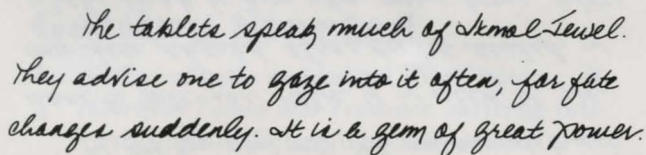 The tablets speak much of Ikmol-Jewel.
They advise one to gaze into it often, for fate
changes suddenly. It is a gem of great power.